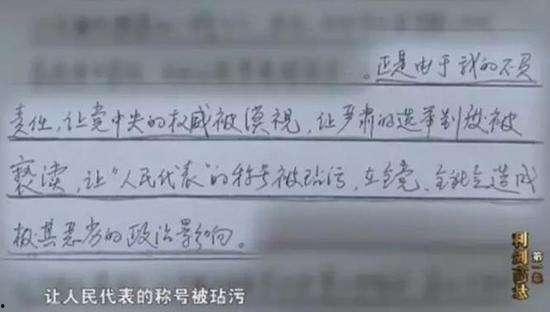 。正是由于我的不负
责任，让党中央的权威被漠视，让严肃的选举制度被
亵渎，让“人民代表”的称号被玷污，在全党、全社会造成
极其恶劣的政治影响。
利剑高悬
第一集
让人民代表的称号被玷污